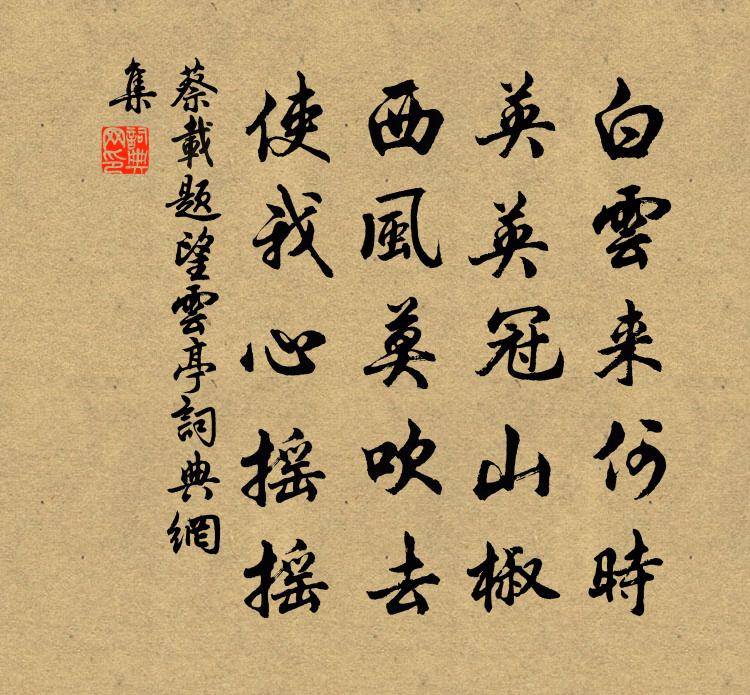 白雲来何時
英英冠山椒
西風莫吹去
使我心摇摇
蔡載題望雲亭詞典網
集
詞典网印